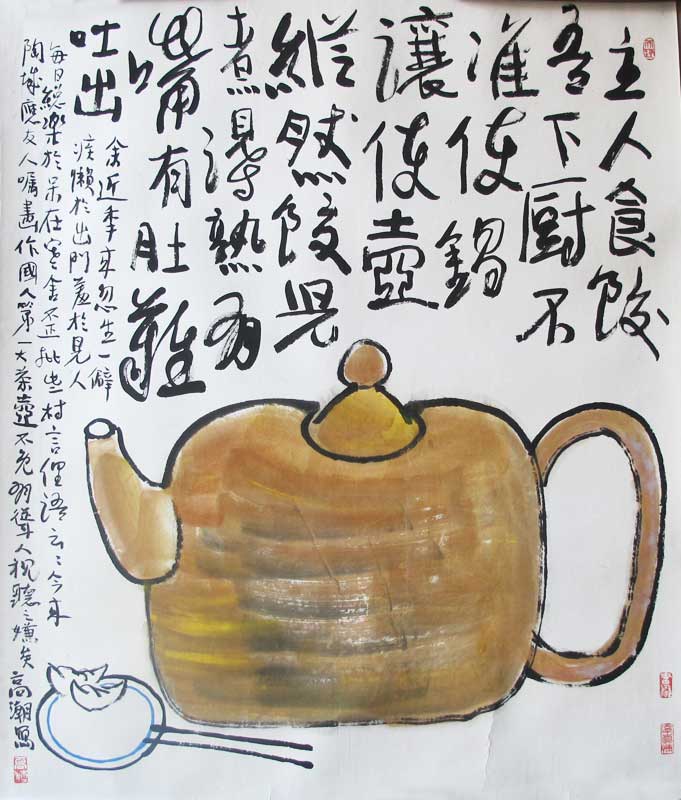 主人食餃
吾下厨不
准使鍋
讓使壺
縱然餃兒
煮得熟有
嘴有肚難
吐出
余近年來忽生一癖
疾懶於出門羞於見人
每日總樂於呆在寒舍些村言俚語云云今來
陶城應友人囑畫作國人第一大茶壺不免有聳人視聽之嫌矣高潮寫